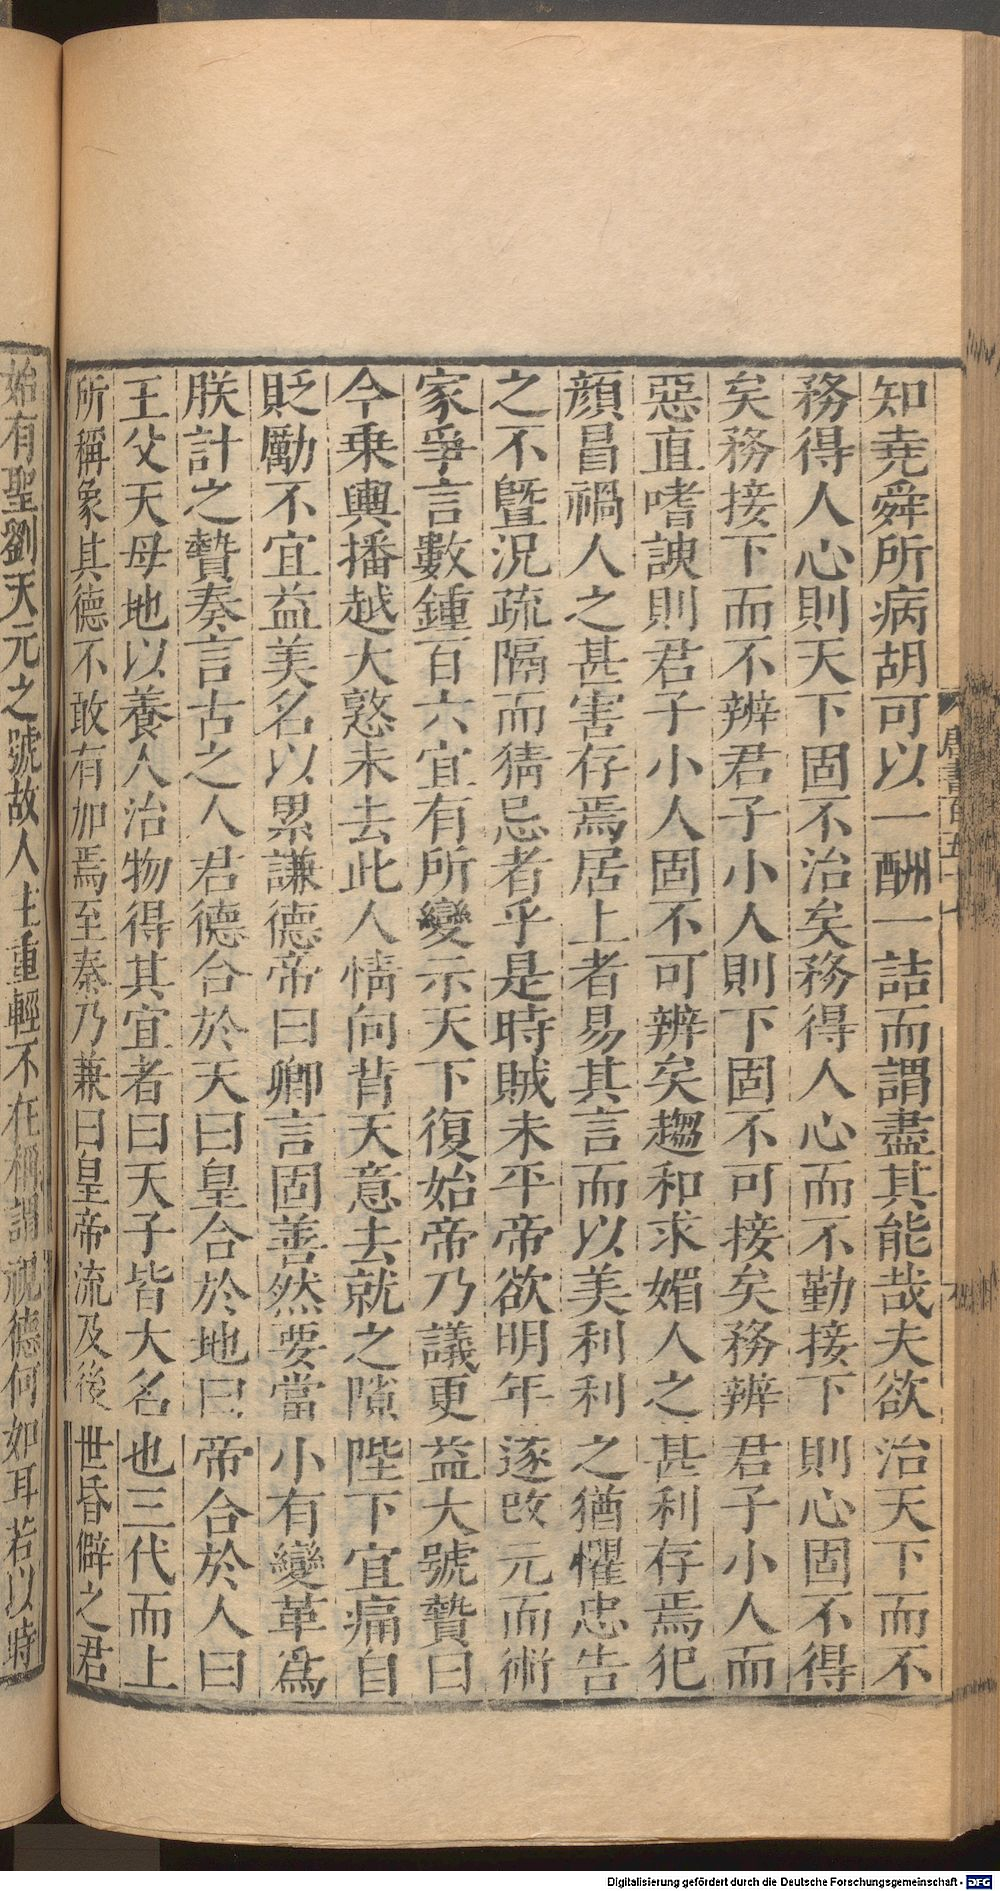 知堯舜所病胡可以一酬一詰而謂盡其能哉夫欲治天下而不
務得人心則天下固不治矣務得人心而不勤接下則心固不得
矣務接下而不辨君子小人則下固不可接矣務辨君子小人而
惡直嗜諛則君子小人固不可辨矣趨和求媚人之甚利存焉犯
顏冒禍人之甚害存焉居上者易其言而以美利利之猶懼忠告
之不曁況疏隔而猜忌者乎是時賊未平帝欲明年遂改元而術
家爭言數鍾百六宜有所變示天下復始帝乃議更益大號贄曰
今乗輿播越大憝未去此人情向背天意去就之隙陛下宜痛自
貶勵不宜益美名以累謙德帝曰卿言固善然要當小有變革爲
朕計之贄奏言古之人君德合於天曰皇合於地曰帝合於人曰
王父天母地以養人治物得其宜者曰天子皆大名也三代而上
所稱象其德不敢有加焉至秦乃兼曰皇帝流及後世昏僻之君
始有聖劉天元之號故人主重輕不在稱謂視德何如耳若以時
唐書百五十
Digitalisierung gefördert durch die Deutsche Forschungsgemeinschaft - DFG